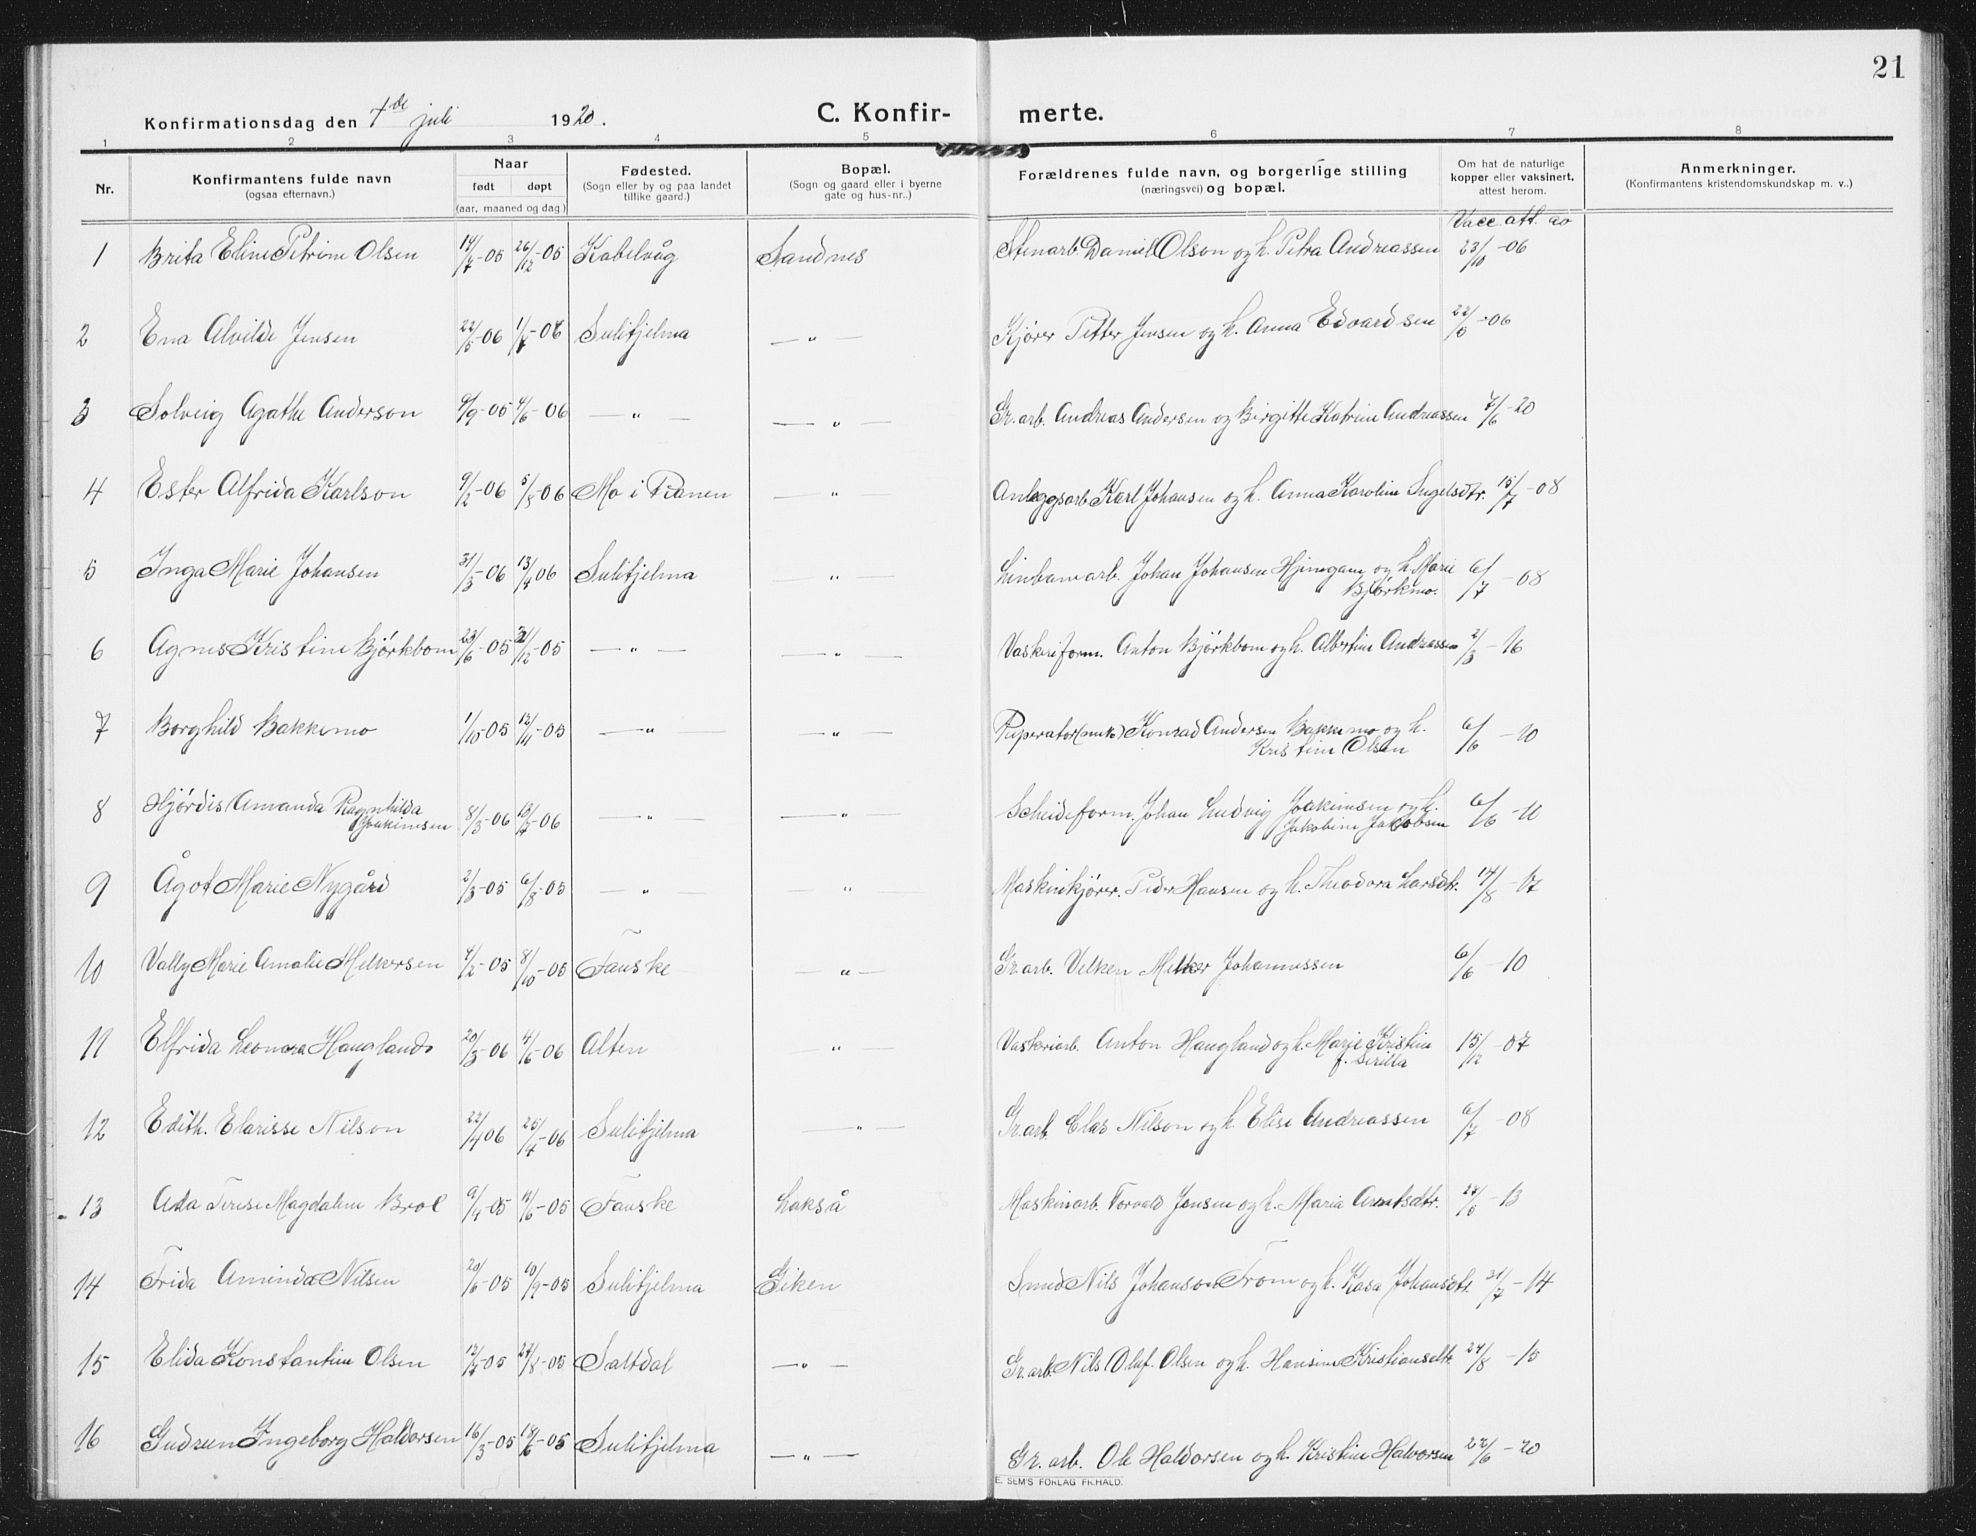 21
Konfirmationsdag den 4de juli 1920. C. Konfir- merte.
1 2 3 4 5 6 7 8
Nr. Konfirmantens fulde navn (ogsaa efternavn.) Naar født døpt (aar, maaned og dag.) Fødested. (Sogn eller by og paa landet tillike gaard.) Bopæl. (Sogn og gaard eller i byerne gate og hus-nr..) Forældrenes fulde navn, og borgerlige stilling (næringsvei) og bopæl. Om hat de naturlige kopper eller vaksinert, attest herom. Anmerkninger. (Konfirmantens kristendomskundskap m. v..)
Vacc. att. av
1 Brita Eline Petrine Olsen 14/7-05 26/12-05 Kabelvåg Sandnes Stenarb. Daniel Olson og h. Petra Andreassen 23/10-06
2 Ena Alvilde Jensen 22/5-06 1/7-06 Sulitjelma — " — Kjører Petter Jensen og h. Anna Edvardsen 22/8-06
3 Solveig Agathe Anderson 9/9-05 4/6-06 — " — — " — Gr. arb. Andreas Andersen og Birgitte Katrine Andreassen 7/6-20
4 Ester Alfrida Karlson 9/2-06 5/8-06 Mo i Ranen — " — Anleggsarb. Karl Johansen og h. Anna Karoline Ingelsdtr. 15/7-08
5 Inga Marie Johansen 31/3-06 13/4-06 Sulitjelma — " — Linbanearb. Johan Johansen og h. Marie
Bjørkmo. 6/7-08
6 Agnes Kristine Bjørkbom 23/6-05 31/12-05 — " — — " — Vaskeriform. Anton Bjørkbom og h. Albertine Andreassen 2/3-16
7 Borghild Bakkemo 1/10-05 12/11-05 — " — — " — Konrad Andersen Bakkemo og h.
Kristine Olsen 6/6-10
8 Hjørdis Amanda Ragnhilda
Joakimsen 8/3-06 15/4-06 — " — — " — Scheideform. Johan Ludvig Joakimsen og h.
Jakobine Jakobsen 6/6-10
9 Ågot Marie Nygård 2/3-05 6/8-05 — " — — " — Maskinkjører. Peder Hansen og h. Theodora Larsdtr. 14/8-07
10 Vally Marie Amalie Melkersen 4/2-05 8/10-05 Fauske " — Gr. arb. Velken Melker Johannessen 6/6-10
11 Elfrida Leonora Hauglands 20/3-06 4/6-06 Alten — " — Vaskeriarb. Anton Haugland og h. Marie Kristine
f. Sirilla 15/12-07
12 Edith. Clarisse Nilson 22/4 06 25/4-06 Sulitjelma — " — Gr. arb. Clas Nilson og h. Elise Andreassen 6/7-08
13 Ada Terese Magdalene Broe 9/4-05 11/6-05 Fauske Lakså Maskinarb. Torvald Jensen og h. Maria Arntsdtr. 28/8-13
14 Frida Aminda Nilsen 20/6-05 10/9-05 Sulitjelma Giken Smed Nils Johanson From og h. Kasa Johansdtr. 21/7-14
15 Elida Konstantine Olsen 12/4-05 27/8-05 Saltdal — " — Gr. arb. Nils Oluf Olsen og h. Hansine Kristiansdtr. 24/8-15
16 Gudrun Ingeborg Haldorsen 16/3-05 18/6-05 Sulitjelma — " — Gr. arb. Ole Haldorsen og h. Kristine Halvorsen 22/6-20
E. SEM'S FORLAG FR.HALD.